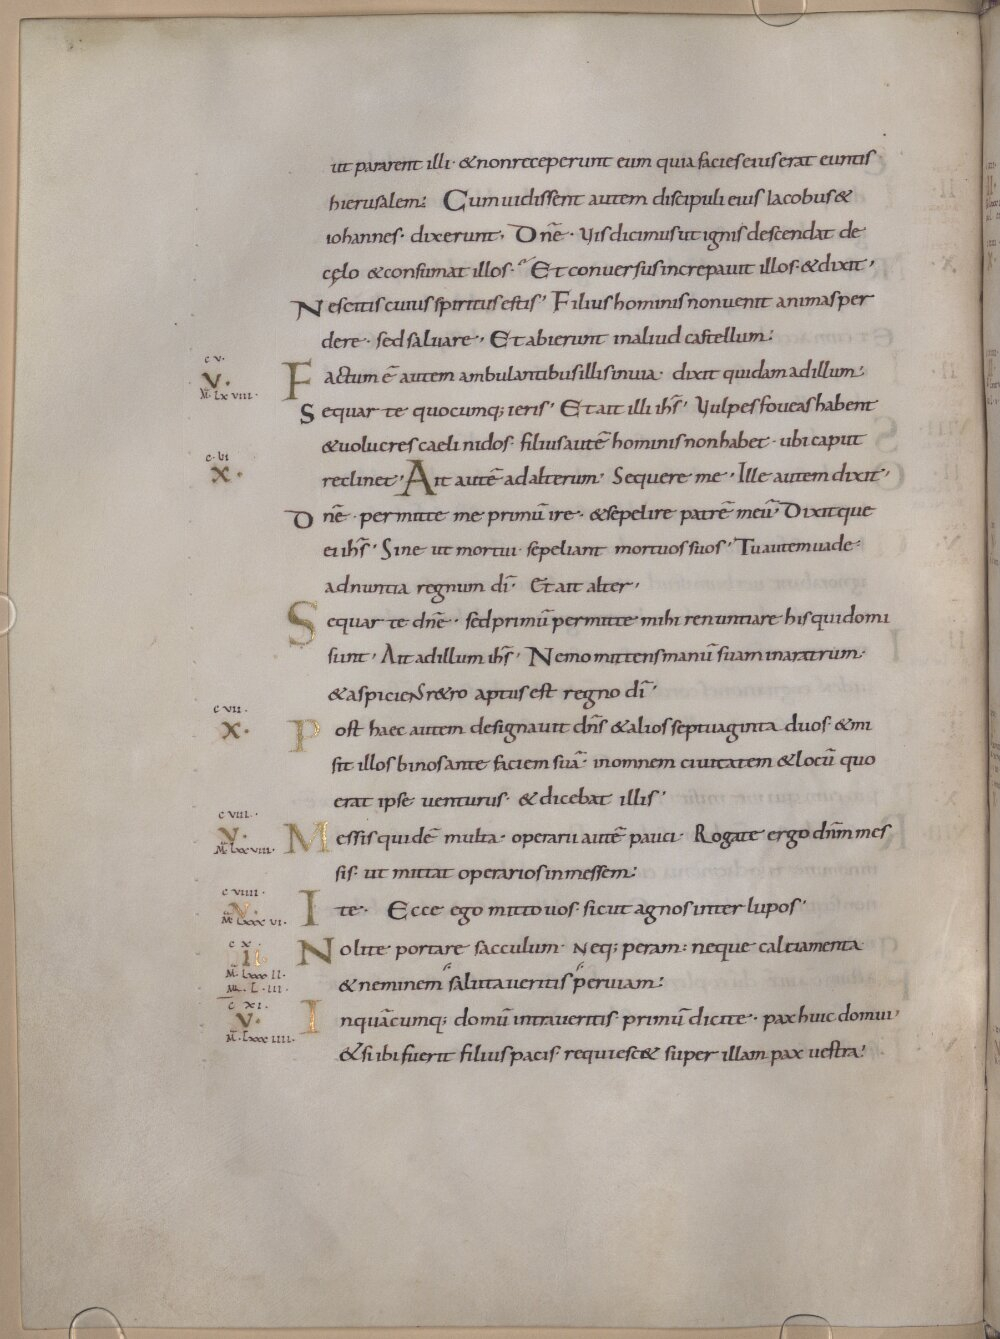 ut pararent illi · & non receperunt eum quia facies eius erat euntis
hierusalem: Cum uidissent autem discipuli eius Iacobus &
iohannes · dixerunt · Dn̄e · Uis dicimus ut ignis descendat de
cęlo & consumat illos · Et conuersus increpauit illos · & dixit ·
Nescitis cuius spiritus estis · Filius hominis non uenit animas per
dere · sed saluare · Et abierunt in aliud castellum:
c v ·
V ·
M̄ · Lx viii ·
Factum ē autem ambulantibus illis in uia · dixit quidam ad illum ·
Sequar te quocumq; ieris · Et ait illi ih̄s · Uulpes foueas habent
& uolucres caeli nidos · filius autē hominis non habet · ubi caput
c · vi
X ·
reclinet · Ait autē ad alterum · Sequere me · Ille autem dixit ·
Dn̄e · permitte me primū ire · & sepelire patrē meū · Dixitque
ei ih̄s · Sine ut mortui · sepeliant mortuos suos · Tu autem uade ·
adnuntia regnum dī · Et ait alter ·
Sequar te dn̄e · sed primū permitte mihi renuntiare his qui domi
sunt · Ait ad illum ih̄s · Nemo mittens manū suam in aratrum ·
& aspiciens r&ro aptus est regno dī ·
c vii ·
X ·
Post haec autem designauit dn̄s & alios septuaginta duos · & mi
sit illos binos ante faciem suā · in omnem ciuitatem & locū quo
erat ipse uenturus · & dicebat illis ·
c viii ·
V ·
M̄ · Lxx viii ·
Messis quidē multa · operarii autē pauci · Rogate ergo dn̄m mes
sis · ut mittat operarios in messem:
c viiii ·
V ·
M̄ · Lxxx vi ·
Ite · Ecce ego mitto uos · sicut agnos inter lupos ·
c x ·
II
M̄ · Lxxx II ·
Mr · L · III ·
Nolite portare sacculum · Neq; peram : neque caltiamenta
& neminem salutaueritis per uiam:
c xi ·
V ·
M̄ · Lxxx IIII ·
In quācumq; domū intraueritis · primū dicite · pax huic domui ·
& si ibi fuerit filius pacis · requiesc& super illam pax uestra ·